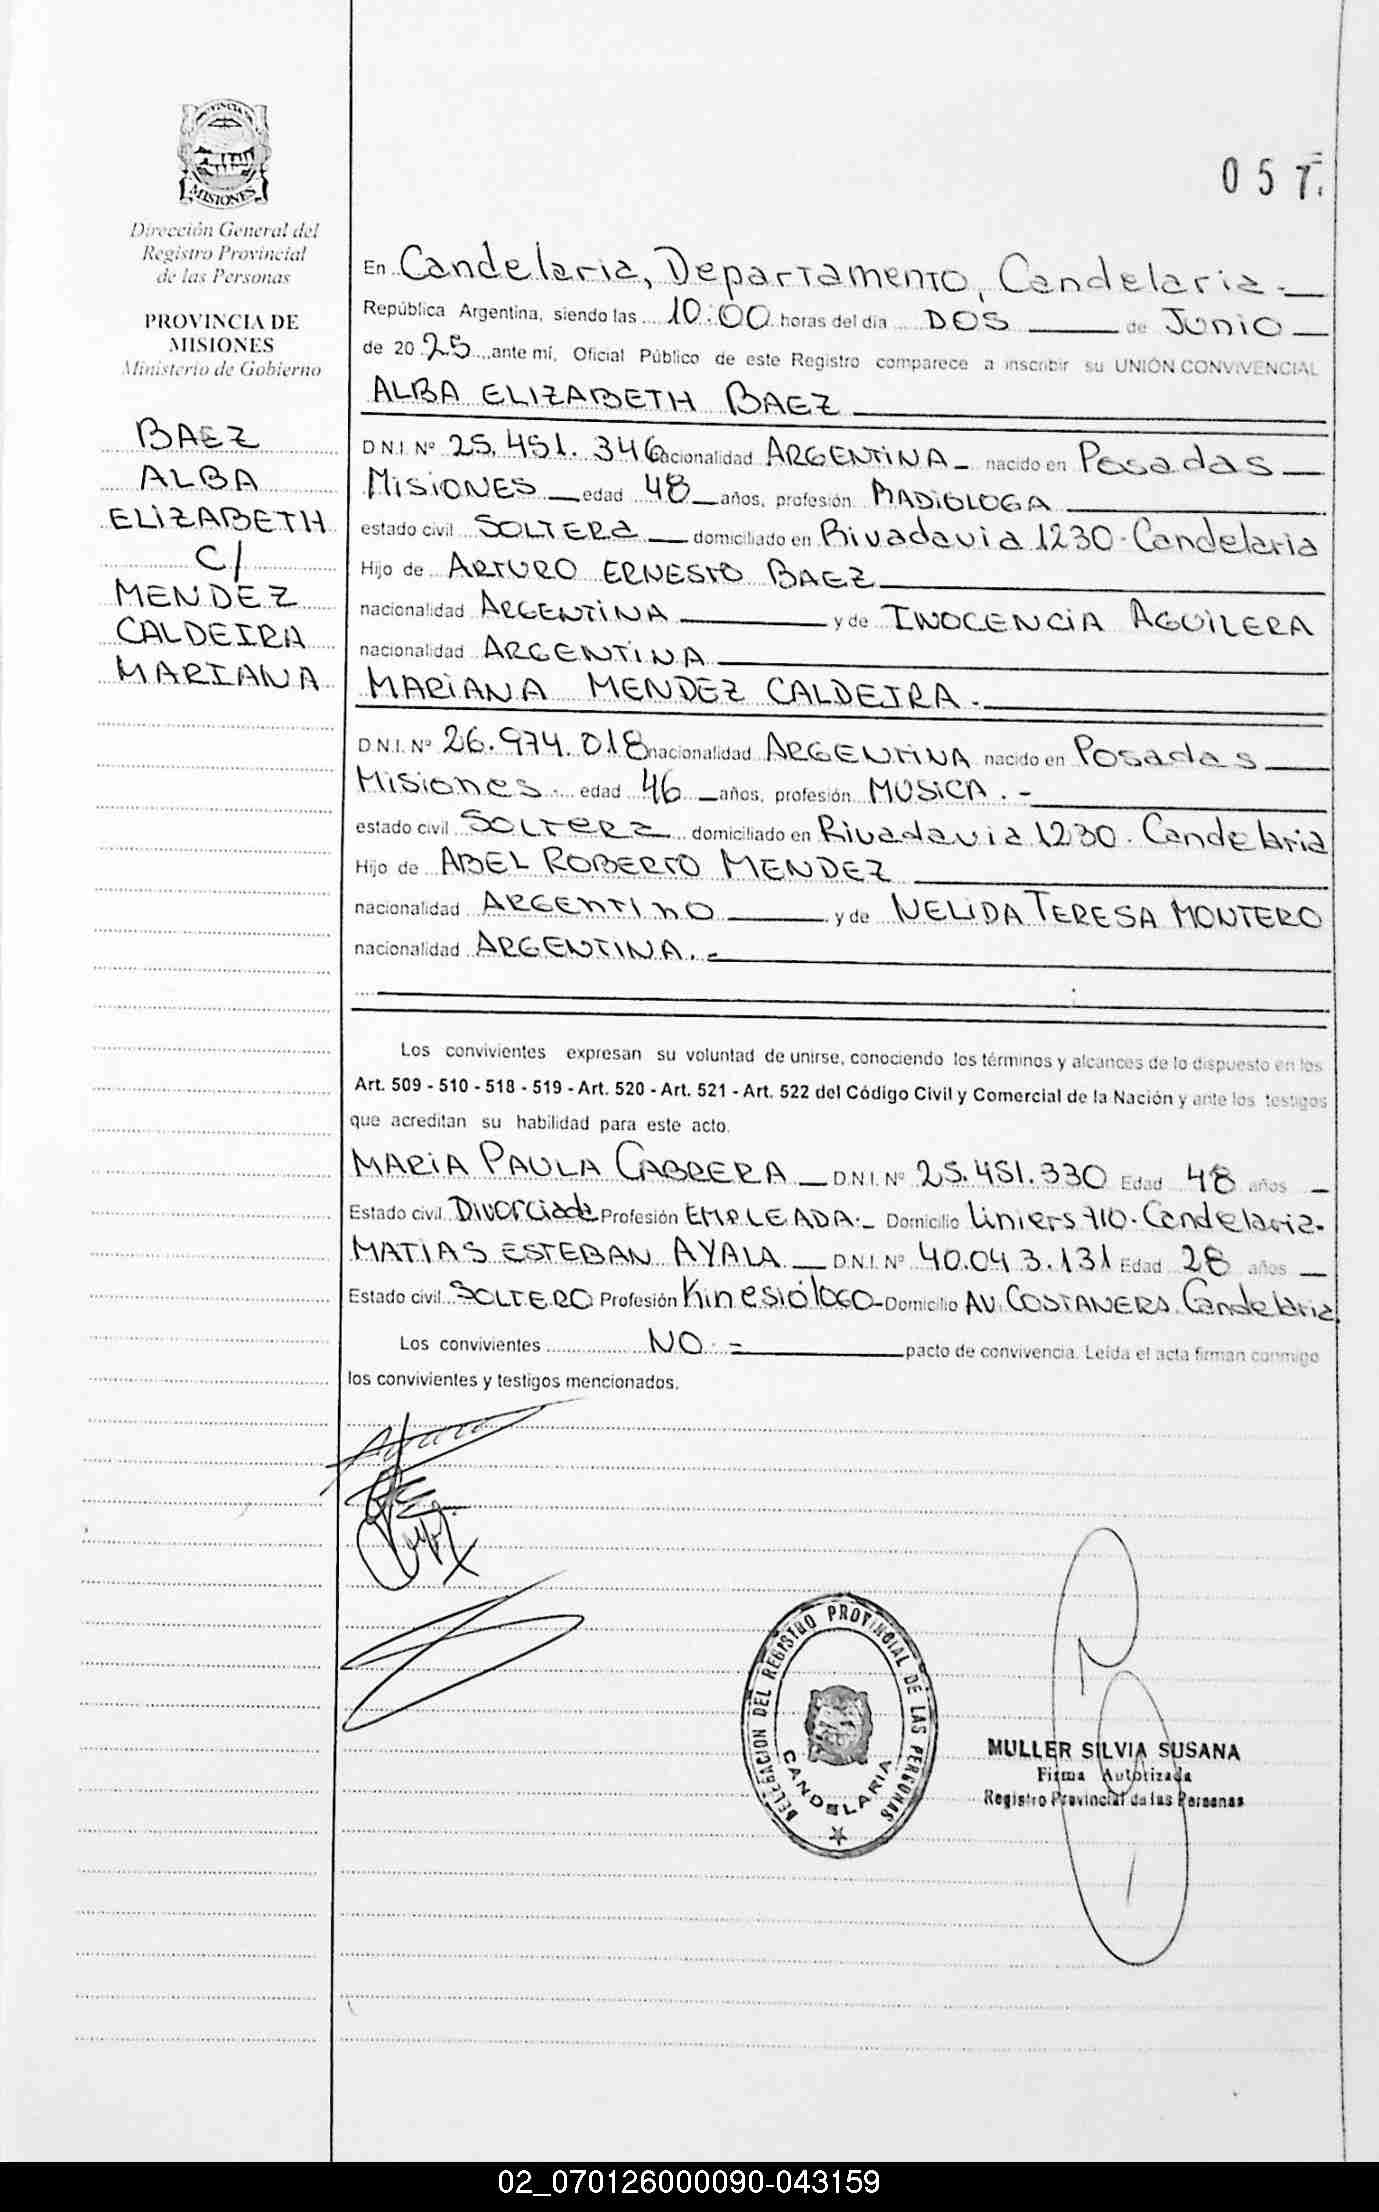 PROVINCIA DE
MISIONES
Dirección General del
Registro Provincial
de las Personas
PROVINCIA DE
MISIONES
Ministerio de Gobierno
BAEZ
ALBA
ELIZABETH
C/
MENDEZ
CALDEIRA
MARIANA
057
En Candelaria, Departamento, Candelaria.-
República Argentina, siendo las 10:00 horas del día DOS de JUNIO
de 2025, ante mí, Oficial Público de este Registro comparece a inscribir su UNIÓN CONVIVENCIAL
ALBA ELIZABETH BAEZ
D.N.I. Nº 25.451.346 nacionalidad ARGENTINA- nacido en Posadas
MISIONES edad 48 años, profesión RADIOLOGA
estado civil SOLTERA domiciliado en Rivadavia 1230-Candelaria
Hijo de ARTURO ERNESTO BAEZ
nacionalidad ARGENTINA y de INOCENCIA AGUILERA
nacionalidad ARGENTINA
MARIANA MENDEZ CALDEIRA.-
D.N.I. Nº 26.974.018 nacionalidad ARGENTINA nacido en Posadas
Misiones. edad 46 años, profesión MUSICA.-
estado civil SOLTERA domiciliado en Rivadavia 1230. Candelaria
Hijo de ABEL ROBERTO MENDEZ
nacionalidad ARGENTINO y de NELIDA TERESA MONTERO
nacionalidad ARGENTINA.-
Los convivientes expresan su voluntad de unirse, conociendo los términos y alcances de lo dispuesto en los
Art. 509 - 510 - 518 - 519 - Art. 520 - Art. 521 - Art. 522 del Código Civil y Comercial de la Nación y ante los testigos
que acreditan su habilidad para este acto.
MARIA PAULA CABRERA D.N.I. Nº 25.451.330 Edad 48 años
Estado civil Divorciada Profesión EMPLEADA.- Domicilio Liniers 710. Candelaria.
MATIAS ESTEBAN AYALA D.N.I. Nº 40.043.131 Edad 28 años
Estado civil SOLTERO Profesión Kinesiólogo- Domicilio AV. COSTANERA Candelaria
Los convivientes NO.= pacto de convivencia. Leída el acta firman conmigo
los convivientes y testigos mencionados.
DELEGACION DEL REGISTRO PROVINCIAL DE LAS PERSONAS
CANDELARIA
MULLER SILVIA SUSANA
Firma Autorizada
Registro Provincial de las Personas
02_070126000090-043159